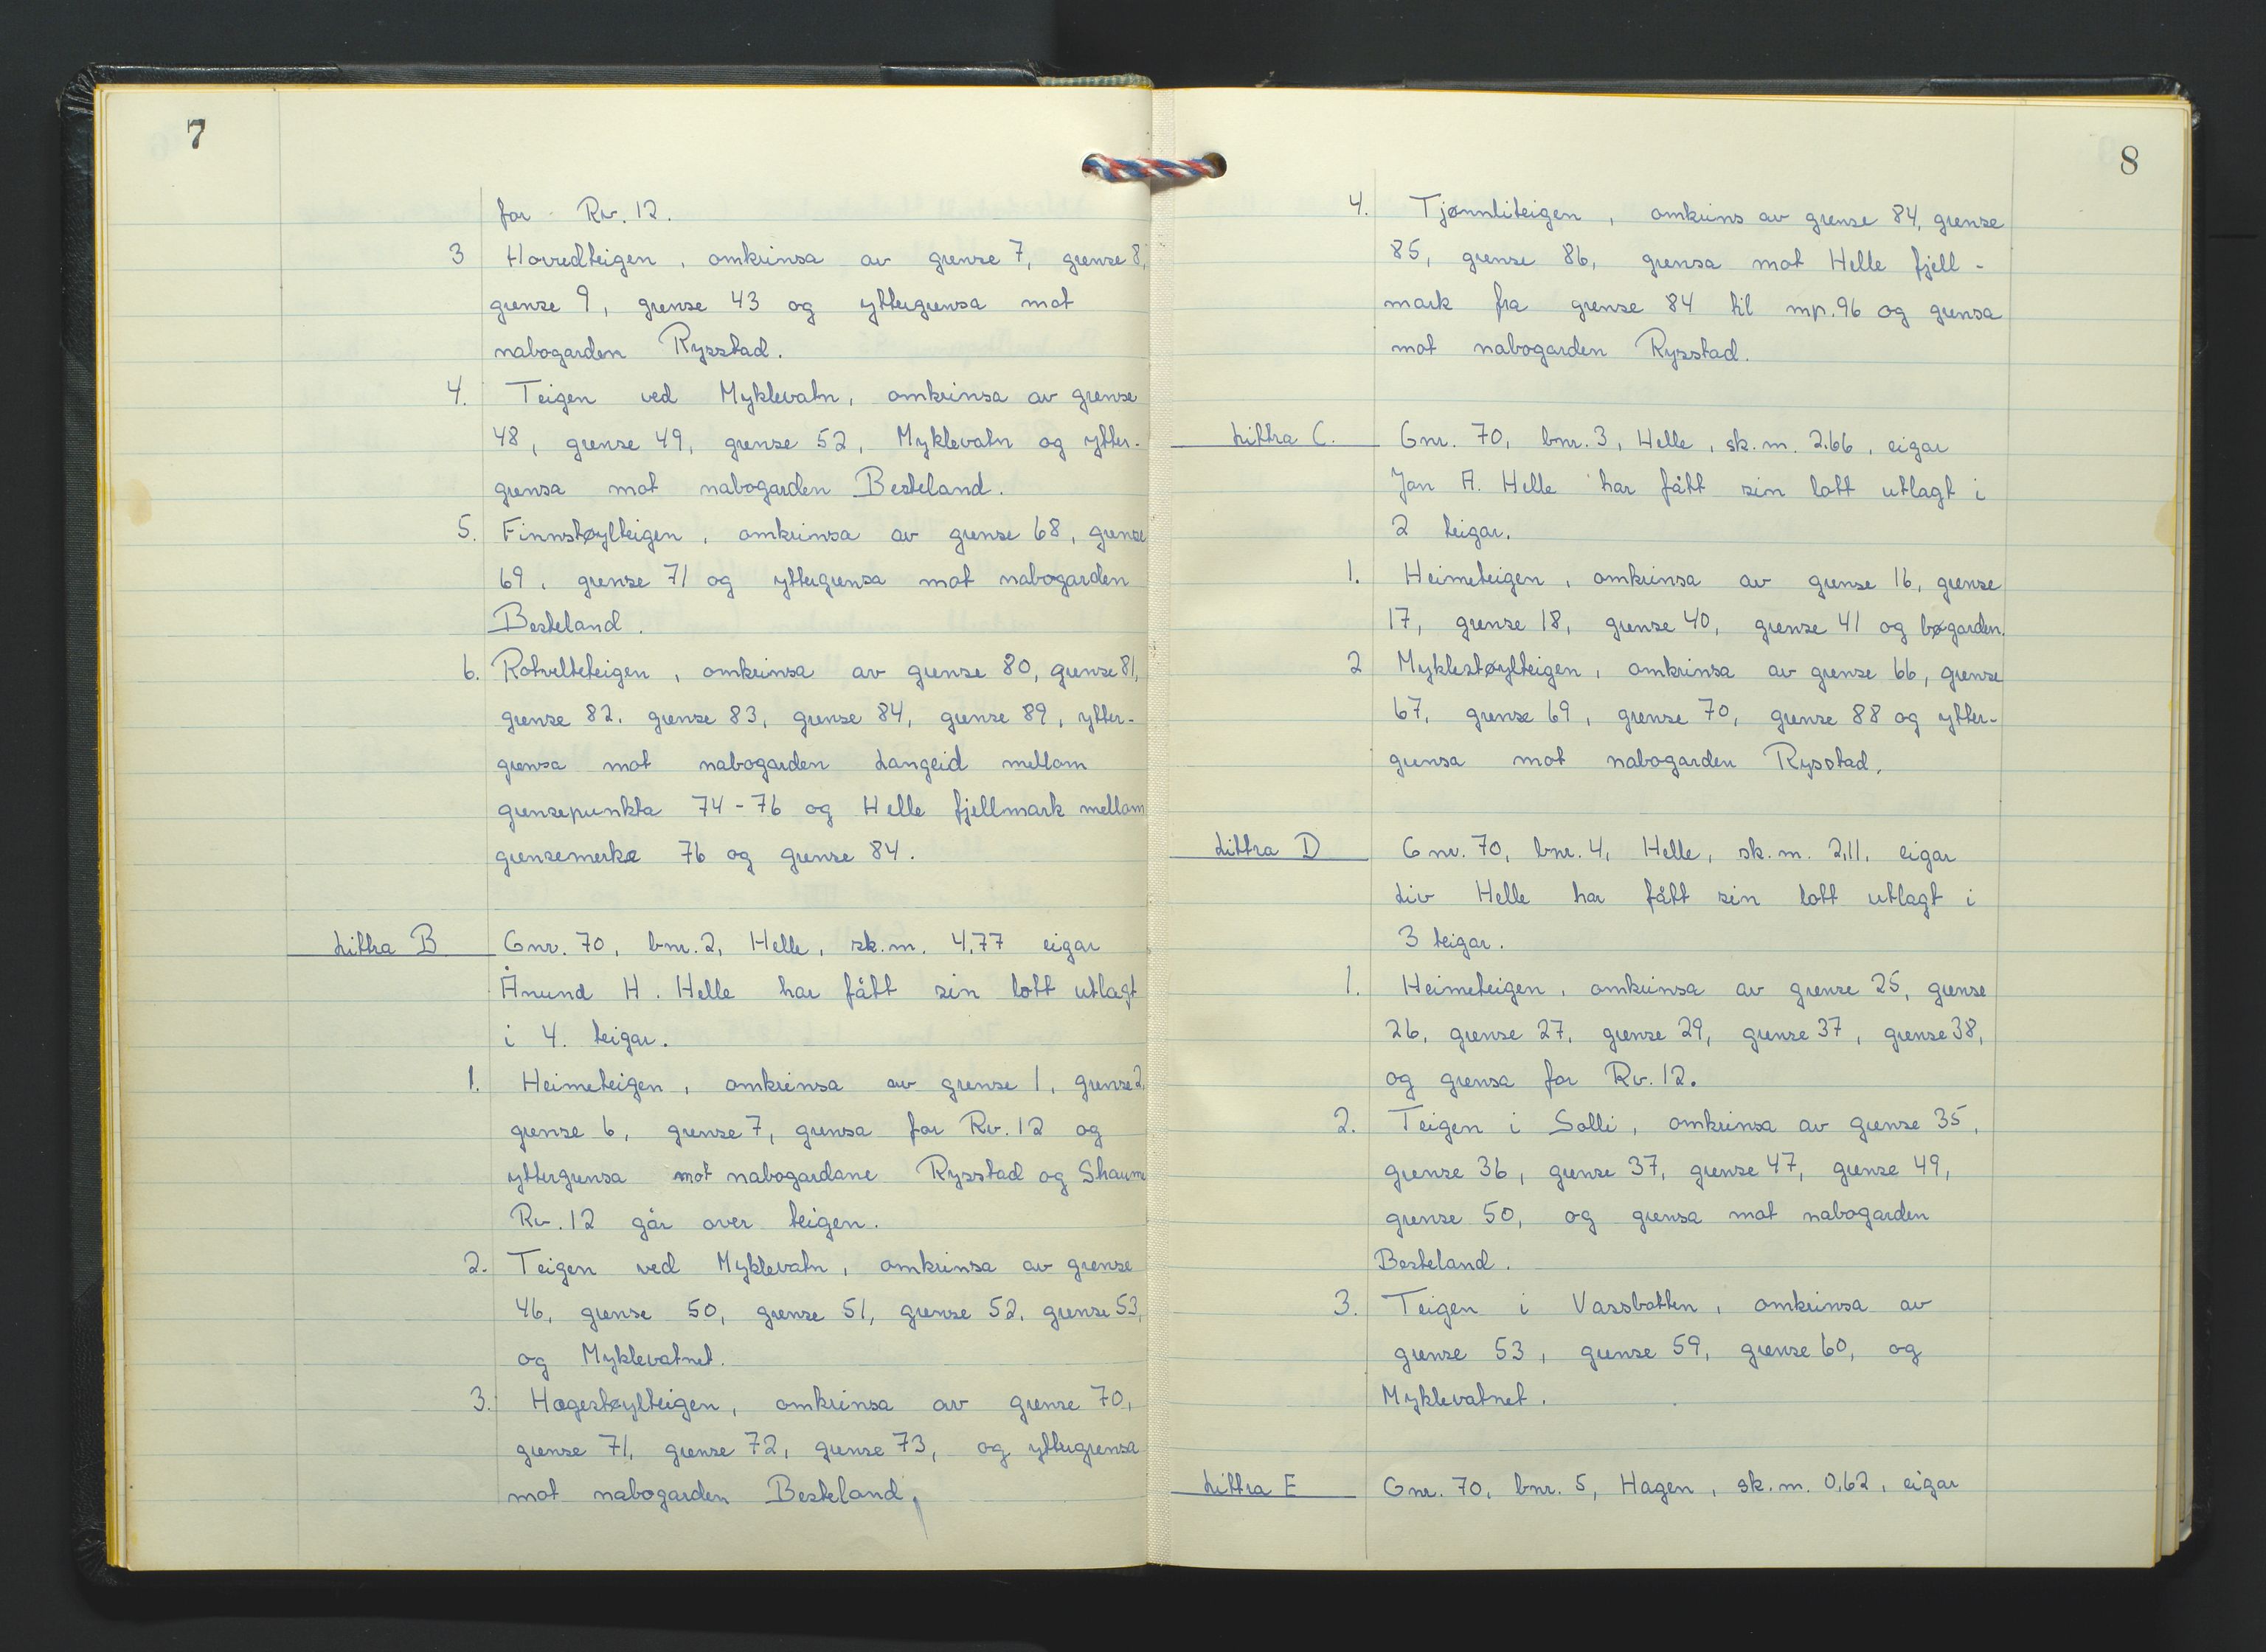 7
for Rv. 12.
3 Hovedteigen, omkrinsa av grense 7, grense 8,
grense 9, grense 43 og yttergrensa mot
nabogarden Rysstad.
4. Teigen ved Myklevatn, omkrinsa av grense
48, grense 49, grense 52, Myklevatn og ytter-
grensa mot nabogarden Besteland.
5. Finnstøylteigen, omkrinsa av grense 68, grense
69, grense 71 og yttergrensa mot nabogarden
Besteland.
6. Rotvelteteigen, omkrinsa av grense 80, grense 81,
grense 82, grense 83, grense 84, grense 89, ytter-
grensa mot nabogarden Langeid mellom
grensepunkta 74-76 og Helle fjellmark mellom
grensemerke 76 og grense 84.
Littra B Gnr. 70, bnr. 2, Helle, sk.m. 4,77 eigar
Ånund H. Helle har fått sin lott utlagt
i 4. teigar.
1. Heimeteigen, omkrinsa av grense 1, grense 2,
grense 6, grense 7, grensa for Rv. 12 og
yttergrensa mot nabogardane Rysstad og Straume
Rv. 12 går over teigen.
2. Teigen ved Myklevatn, omkrinsa av grense
46, grense 50, grense 51, grense 52, grense 53,
og Myklevatnet.
3. Hægestøylteigen, omkrinsa av grense 70,
grense 71, grense 72, grense 73, og yttergrensa
mot nabogarden Besteland,
8
4. Tjønnliteigen, omkrins av grense 84, grense
85, grense 86, grensa mot Helle fjell-
mark fra grense 84 til mp. 96 og grensa
mot nabogarden Rysstad.
Littra C. Gnr. 70, bnr. 3, Helle, sk.m. 2.66, eigar
Jon A. Helle har fått sin lott utlagt i
2 teigar.
1. Heimeteigen, omkrinsa av grense 16, grense
17, grense 18, grense 40, grense 41 og bøgarden.
2 Myklestøylteigen, omkrinsa av grense 66, grense
67, grense 69, grense 70, grense 88 og ytter-
grensa mot nabogarden Rysstad.
Littra D Gnr. 70, bnr. 4, Helle, sk.m. 2,11, eigar
Liv Helle har fått sin lott utlagt i
3 teigar.
1. Heimeteigen, omkrinsa av grense 25, grense
26, grense 27, grense 29, grense 37, grense 38,
og grensa for Rv. 12.
2. Teigen i Solli, omkrinsa av grense 35,
grense 36, grense 37, grense 47, grense 49,
grense 50, og grensa mot nabogarden
Besteland.
3. Teigen i Vassbotten, omkrinsa av
grense 53, grense 59, grense 60, og
Myklevatnet.
Littra E Gnr. 70, bnr. 5, Hagen, sk.m. 0,62, eigar